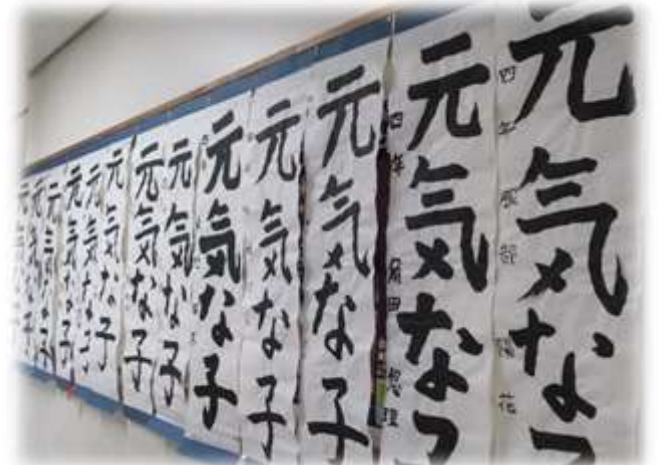 元気な子
四年 服部
元気な子
四年
元気な子
元気な子
元気な子
元気な子
元気な子
元気な子
元気な子
元気な子
元気な子
元気な子